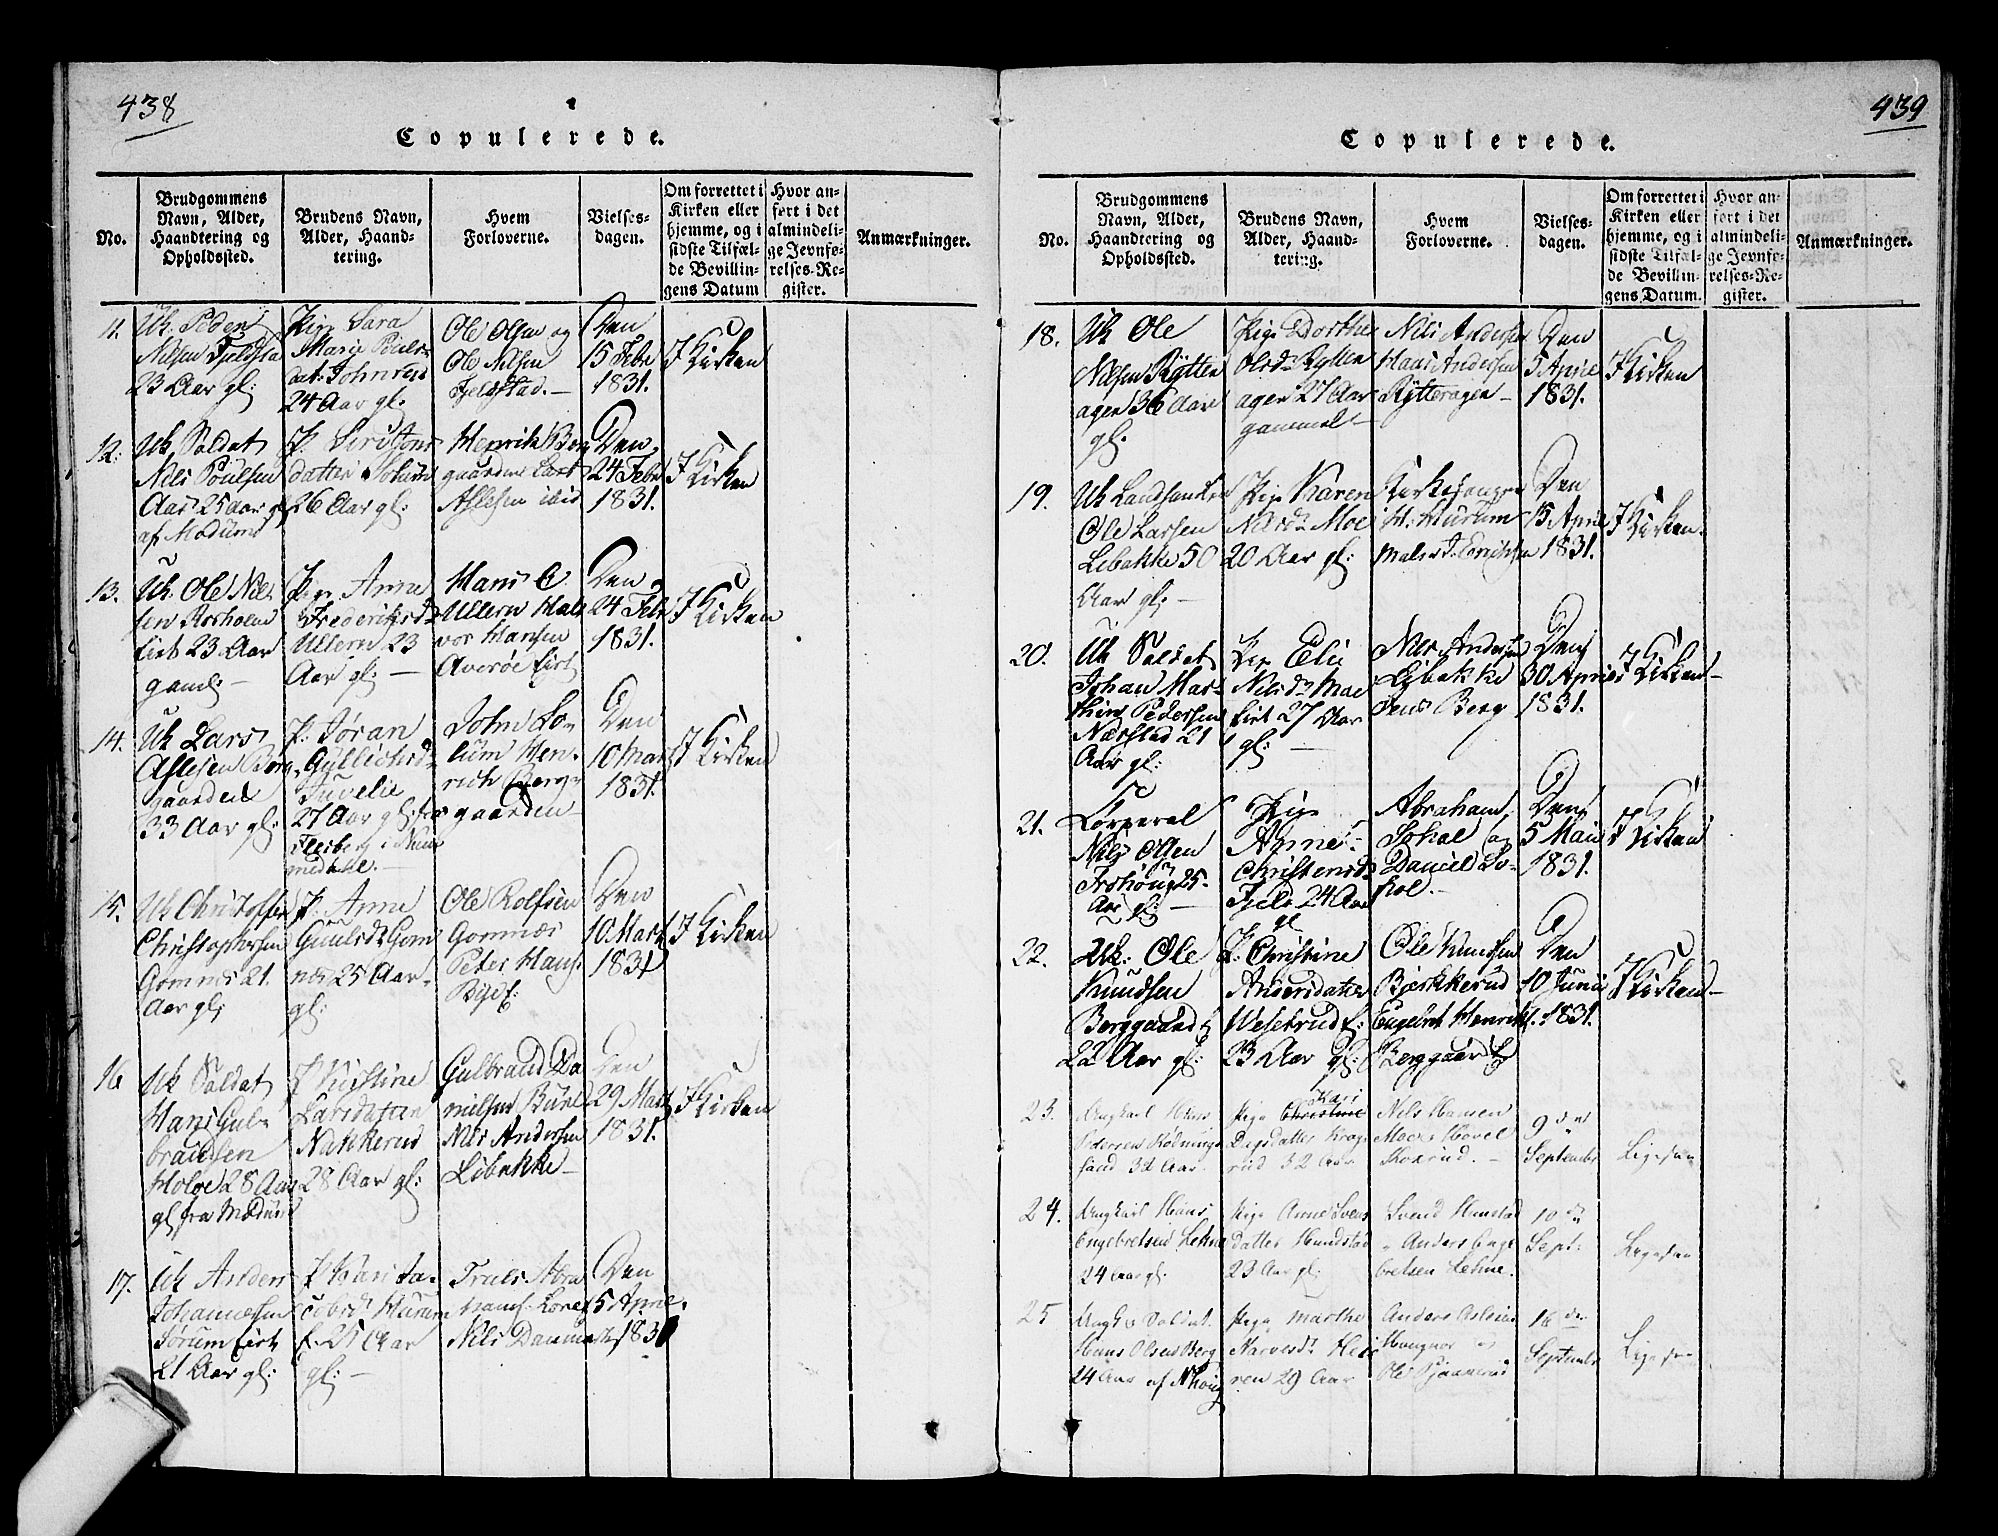 438
Copulerede.
No.
Brudgommens
Navn, Alder,
Haandtering og
Opholdssted.
Brudens Navn,
Alder, Haand-
tering.
Hvem
Forloverne.
Vielses-
dagen.
Om forrettet i
Kirken eller
hjemme, og i
sidste Tilfæl-
de Bevillin-
gens Datum
Hvor an-
ført i det
almindeli-
ge Jevnfø-
relses-Re-
gister.
Anmærkninger.
11.
Uk: Peder
Nilsen Fjeldsta
23 Aar gl:
Pige Sara
Marie Pouls
dat: Johnrud
24 Aar gl.
Ole Olsen og
Ole Nilsen
Fjeldstad.—
Den
15 Febr
1831.
I Kirken
12:
Uk Soldat
Nils Poulsen
Aas 25 aar gl
af Modum
P. Siri Tors
datter
26 Aar gl:
Henrik Berg
gaarden Lars
Aslesen ibid
Den
24 Febr
1831.
I Kirken
13.
Uk. Ole Niel
sen Rosholm
eiet 23 Aar
gaml. —
Pige Anne
Frederiksd
Ullern 23
Aar gl: —
Hans C.
Ullern Hal
vor Hansen
Averøe eiet
Den
24 Febr
1831.
I Kirken
14.
Uk Lars
Aslesen Berg
gaarden
33 Aar gl:
P. Jøran
Gullichsd
Juvelie
27 Aar gl: fra
Flesberg i Num
medahl.—
John Lo-
lum Hen-
rich Berg-
gaarden
Den
10 Marts
1831.
I Kirken
15.
Uk Christoffer
Christophersen
Gomnes 21.
Aar gl;
P. Anne
Guulsd: Gom
nes 25 Aar.
gl:
Ole Rolfsen
Gomnes
Peter Hans:
Bye f:
Den
10 Marts
1831
I Kirken
16
Uk Soldat
Hans Gul-
brandsen
Holoe 28 Aar
gl fra Modum
P Kirstine
Larsdatter
Nakkerud
28 Aar gl:
Gulbrand Da
nielsen Bure
Nils Andersen
Libakke—
Den
29 Marts
1831.
I Kirken
17.
Uk Anders
Johannesen
Sørum eiet
21 Aar gl:
P Kari Ja-
cobsd Hurum
f. 25 Aar
gl: —
Truls Abra
hams: Lore
Nils
Den
5 Apr.
1831
439
Copulerede.
No.
Brudgommens
Navn, Alder,
Haandtering og
Opholdssted.
Brudens Navn,
Alder, Haand-
tering.
Hvem
Forloverne.
Vielses-
dagen.
Om forrettet i
Kirken eller
hjemme, og i
sidste Tilfæl-
de Bevillin-
gens Datum.
Hvor an-
ført i det
almindeli-
ge Jevnfø-
relses-Re-
gister.
Anmærkninger.
18.
Uk Ole
Nilsen Rytter
agen 36 Aar
gl.
Pige Dorthe
Olsdr Rytter
agen 27 Aar
gammel—
Nils Andersen
Haas Andersen
Rytteragen —
Den
5 April
1831.
I Kirken
19.
Uk
Ole Larsen
Libakke 50
Aar gl: —
Pige Karen
Nilsdr Moe
20 Aar gl:
Kirkesanger
H. Hurum
Maler I. Erichsen
Den
15 April
1831.
I Kirken.
20.
Uk Soldat
Johan Mar-
thin Pedersen
Nærstad 21
Aar gl:
Pige Elie
Nilsdr Moe
eiet 27 Aar
gl: —
Nils Andersen
Libakke
Jens Berg
Den
30 April
1831.
I Kirken—
21.
Corporal
Nils Olsen
Frøhoug 25
Aar gl: —
Pige
Anne
Christensd:
Fjeld 24 Aar
gl
Abraham
Sohol og
Daniel So-
hol.—
Den
5 Mai
1831.
I Kirken
22.
Uk: Ole
Knudsen
Berggaard E
22 Aar gl:
P. Christine
Andersdatter
Wesetrud f:
23 Aar gl:
Ole Knudsen
Bjerkkerud
Engebret Henriks.
Berggaard E
Den
10 Junii
1831.
I Kirken—
23.
Ungkarl Hans
Pedersen Rødnings
sand 32 Aar.
Pige Kari Christine
Dagsdatter Krog
rud 32 Aar
Nils Hansen
Moe
rud. —
9de
September
Ligesaa
24.
Ungkarl Hans
Engebretsen Lehne
24 Aar gl:
Pige Anne Svens
datter Hunstad
23 Aar gl:
Svend Hunstad
Anders Enge
bretsen Lehne.
10de
Sept:
Ligesaa
25
Ungk: Soldat
Hans Olsen Berg
24 Aar af Nhoug
Pige Marthe
Narvesd:
ren 29 Aar
Anders Aslesen
Haugnor og
Ole
16de
September
Ligesaa